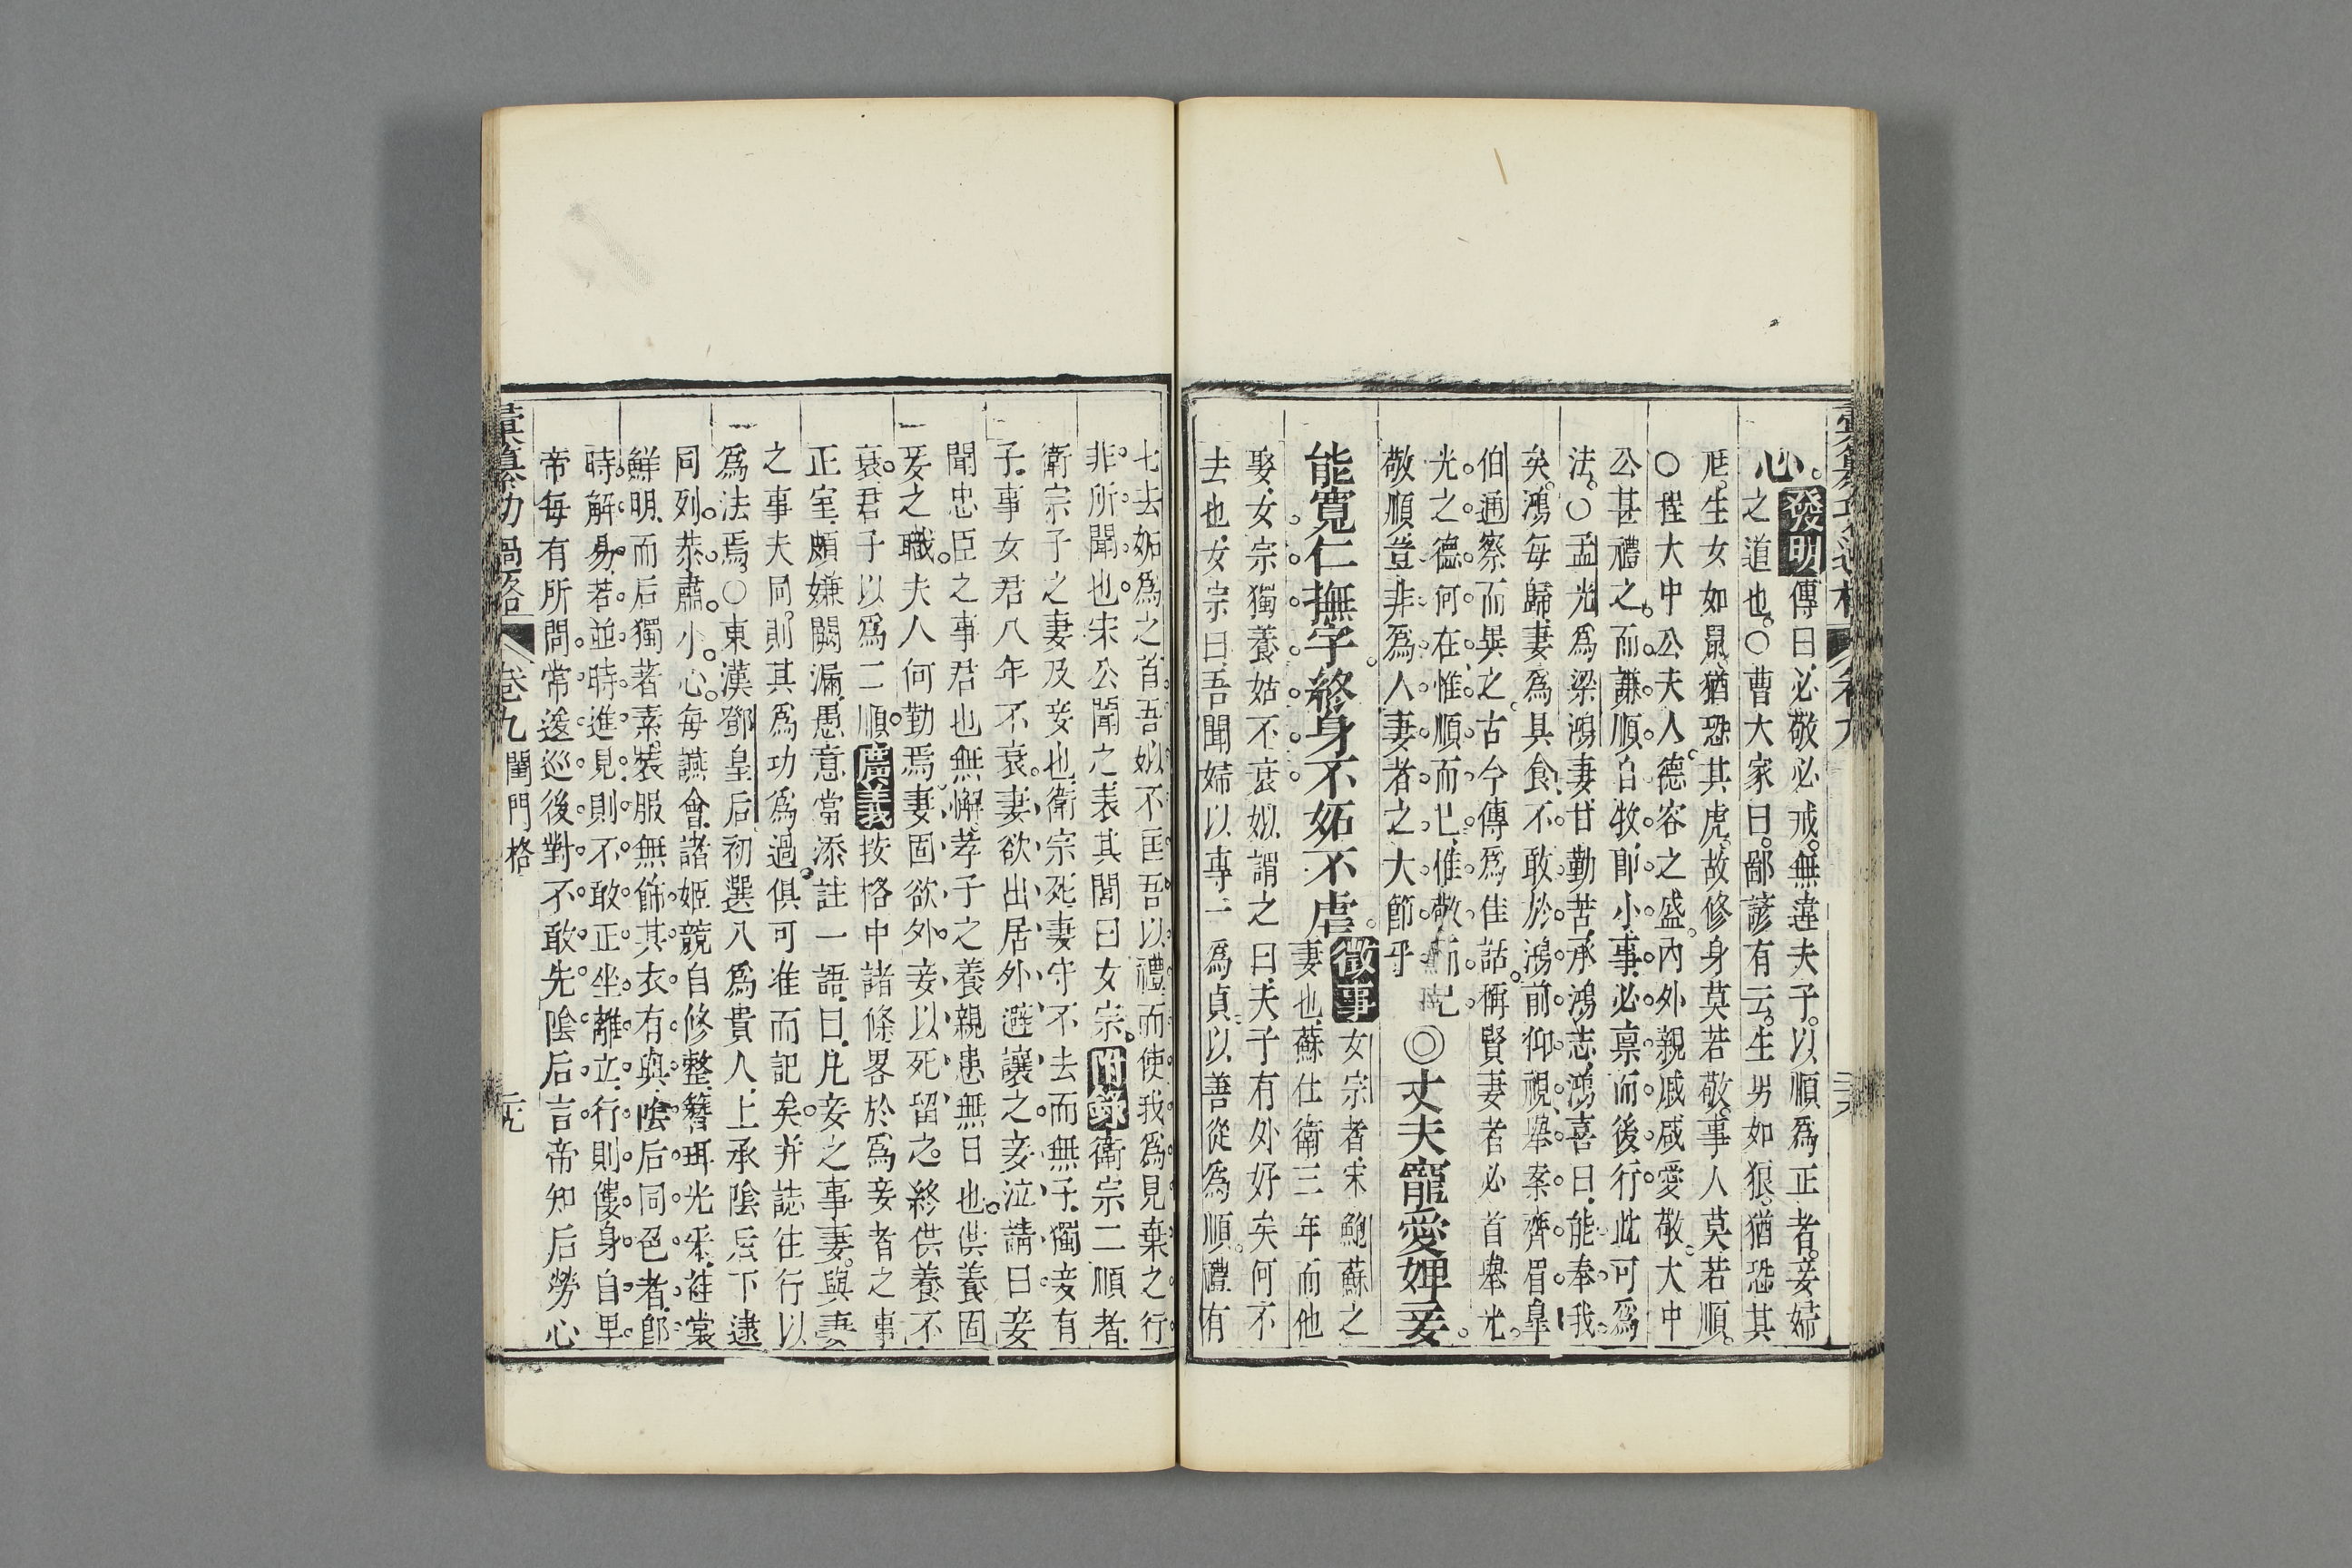 心。發明傳曰必敬必戒。無違夫子。以順爲正者。妾婦
之道也。○曹大家曰。鄙諺有云。生男如狼。猶恐其
尫。生女如鼠。猶恐其虎。故修身莫若敬。事人莫若順。
○程大中公夫人。德容之盛。內外親戚。咸愛敬。大中
公甚禮之。而謙順自牧。卽小事必稟而後行。此可爲
法。○孟光爲梁鴻妻。甘勤苦。承鴻志。鴻喜曰。能奉我
矣。鴻每歸。妻爲具食。不敢於鴻前仰視。舉案齊眉。皐
伯通察而異之。古今傳爲佳話。稱賢妻者必首舉光。
光之德何在。惟順而已。惟敬而已
敬順豈非爲人妻者之大節乎
◎丈夫寵愛婢妾。
能寬仁撫字。終身不妬不虐。徵事女宗者。宋鮑蘇之
妻也。蘇仕衛三年而他
娶。女宗獨養姑不衰。姒謂之曰。夫子有外好矣。何不
去也。女宗曰。吾聞婦以專一爲貞。以善從爲順。禮有
七去。妬爲之首。吾姒不匡吾以禮。而使我爲見棄之行。
非所聞也。宋公聞之。表其閭曰女宗。附錄衛宗二順者。
衛宗子之妻及妾也。衛宗死。妻守不去而無子。獨妾有
子。事女君八年不衰。妻欲出居外避讓之。妾泣請曰。妾
聞忠臣之事君也無懈。孝子之養親患無日也。供養固
妾之職。夫人何勤焉。妻固欲外。妾以死留之。終供養不
衰。君子以爲二順。廣義按格中諸條。畧於爲妾者之事
正室。頗嫌闕漏。愚意當添註一語。曰。凡妾之事妻。與妻
之事夫同。則其爲功爲過。俱可准而記矣。并誌往行以
爲法焉。○東漢鄧皇后。初選入爲貴人。上承陰后。下逮
同列。恭肅小心。每讌會。諸姬競自修整。簪珥光采。袿裳
鮮明。而后獨著素裝。服無飾。其衣有與陰后同色者。卽
時解易。若並時進見。則不敢正坐離立。行則僂身自卑。
帝每有所問。常逡巡後對。不敢先陰后言。帝知后勞心
彙纂功過格 卷九 閨門格 二九